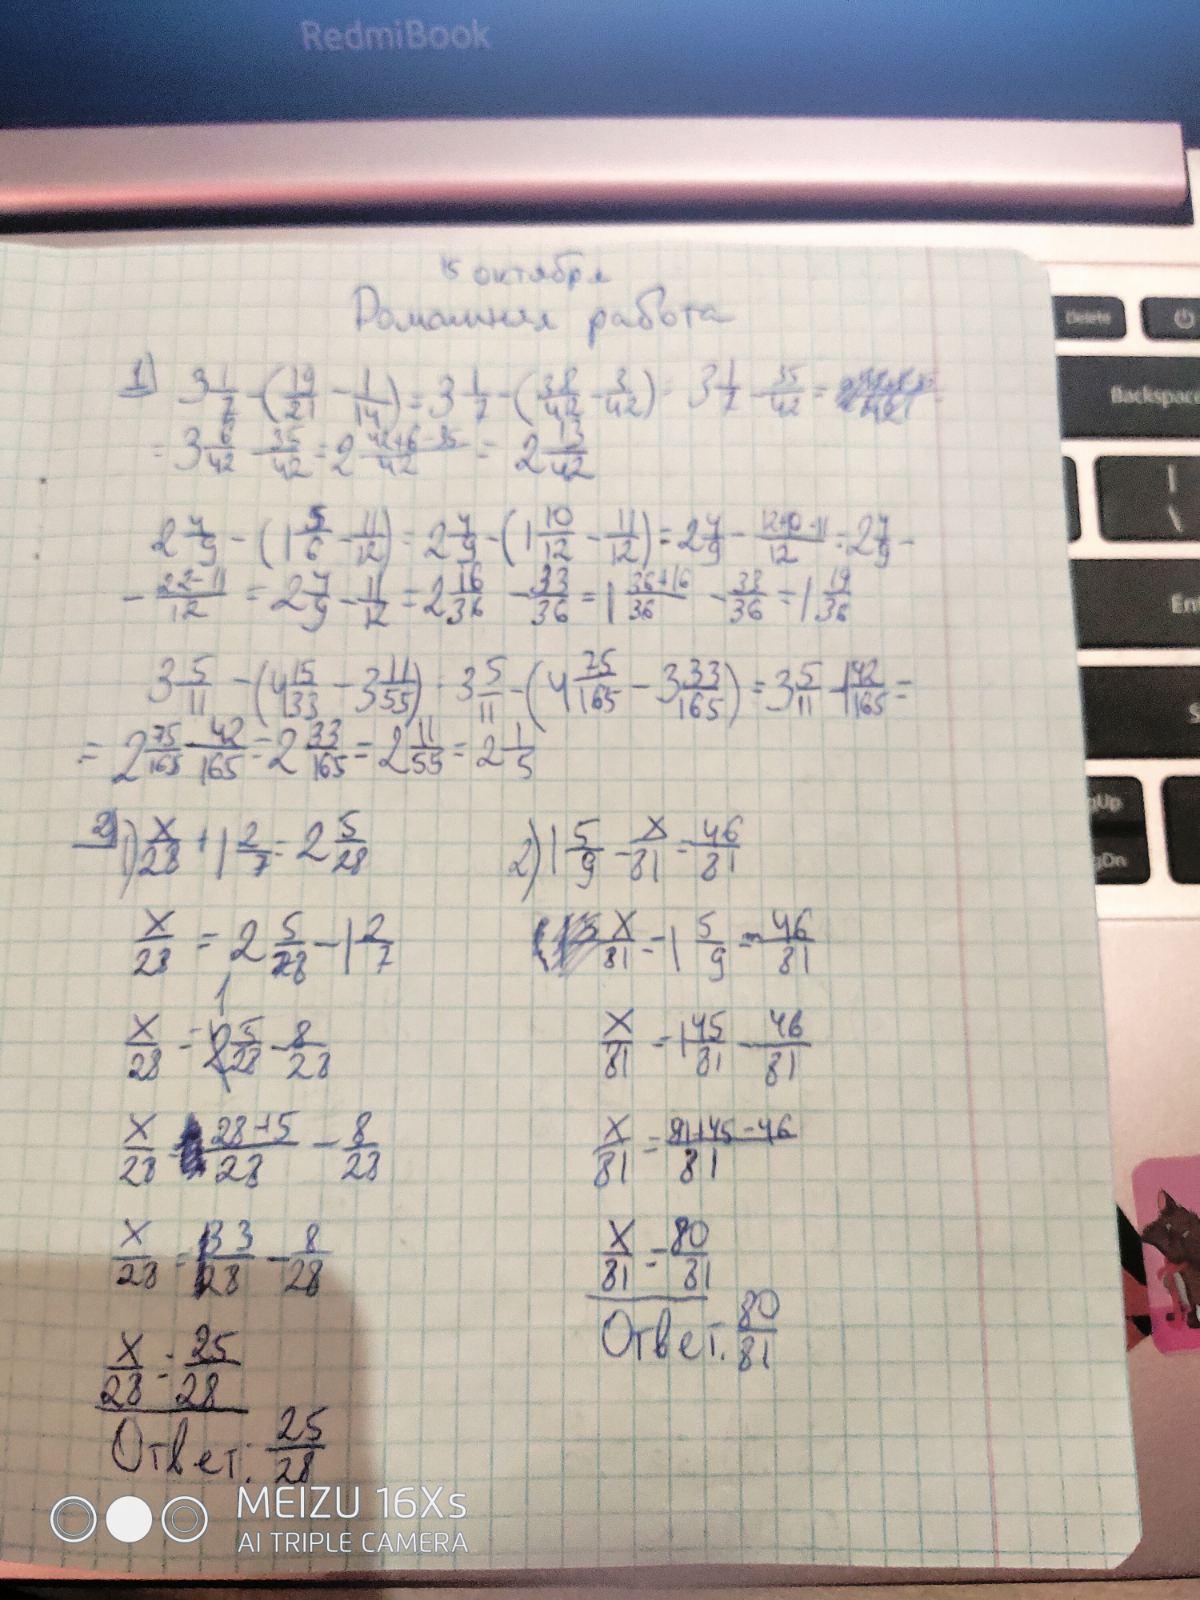 RedmiBook
Delete
Backspace
15 октября
Домашняя работа
1) 3 1/7 - (19/21 - 1/14) = 3 1/7 - (38/42 - 3/42) = 3 1/7 - 35/42 =
= 3 6/42 - 35/42 = 2 (42+6-35)/42 = 2 13/42
2 4/9 - (1 5/6 - 11/12) = 2 4/9 - (1 10/12 - 11/12) = 2 4/9 - (12+10-11)/12 = 2 4/9 -
- (22-11)/12 = 2 4/9 - 11/12 = 2 16/36 - 33/36 = 1 (36+16)/36 - 33/36 = 1 19/36
3 5/11 - (4 15/33 - 3 11/55) = 3 5/11 - (4 75/165 - 3 33/165) = 3 5/11 - 1 42/165 =
= 2 75/165 - 42/165 = 2 33/165 = 2 11/55 = 2 1/5
2) 1) x/28 + 1 2/7 = 2 5/28
x/28 = 2 5/28 - 1 2/7
1
x/28 = 2 5/28 - 8/28
x/28 = (28+5)/28 - 8/28
x/28 = 33/28 - 8/28
x/28 = 25/28
Ответ: 25/28
2) 1 5/9 - x/81 = 46/81
x/81 = 1 5/9 - 46/81
x/81 = 1 45/81 - 46/81
x/81 = (81+45-46)/81
x/81 = 80/81
Ответ: 80/81
|
\
En
S
gUp
gDn
MEIZU 16Xs
AI TRIPLE CAMERA